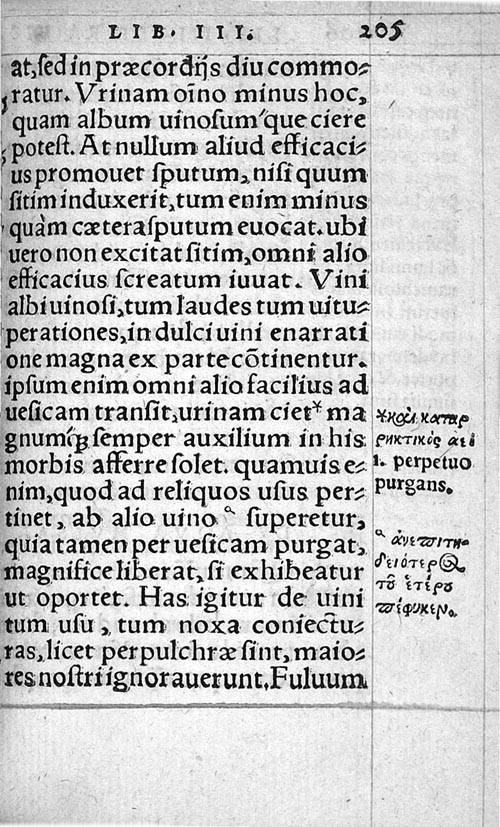 LIB. III. 205
at, sed in præcordijs diu commo-
ratur. Vrinam oĩno minus hoc,
quam album uinosumque ciere
potest. At nullum aliud efficaci-
us promouet sputum, nisi quum
sitim induxerit, tum enim minus
quàm cætera sputum euocat. ubi
uero non excitat sitim, omni alio
efficacius screatum iuuat. Vini
albi uinosi, tum laudes tum uitu-
perationes, in dulci uini enarrati
one magna ex parte cõtinentur.
ipsum enim omni alio facilius ad
uesicam transit, urinam ciet* ma
gnumq́ȝ semper auxilium in his
morbis afferre solet. quamuis e-
nim, quod ad reliquos usus per-
tinet, ab alio uino ᵃ superetur,
quia tamen per uesicam purgat,
magnifice liberat, si exhibeatur
ut oportet. Has igitur de uini
tum usu, tum noxa coniectu-
ras, licet perpulchræ sint, maio-
res nostri ignorauerunt. Fuluum
*καὶ καταῤ
ῥηκτικὸς ἀεὶ
i. perpetuo
purgans.
ᵃ ἀνεπιτη-
δειότερος
τοῦ ἑτέρου
πέφυκεν.